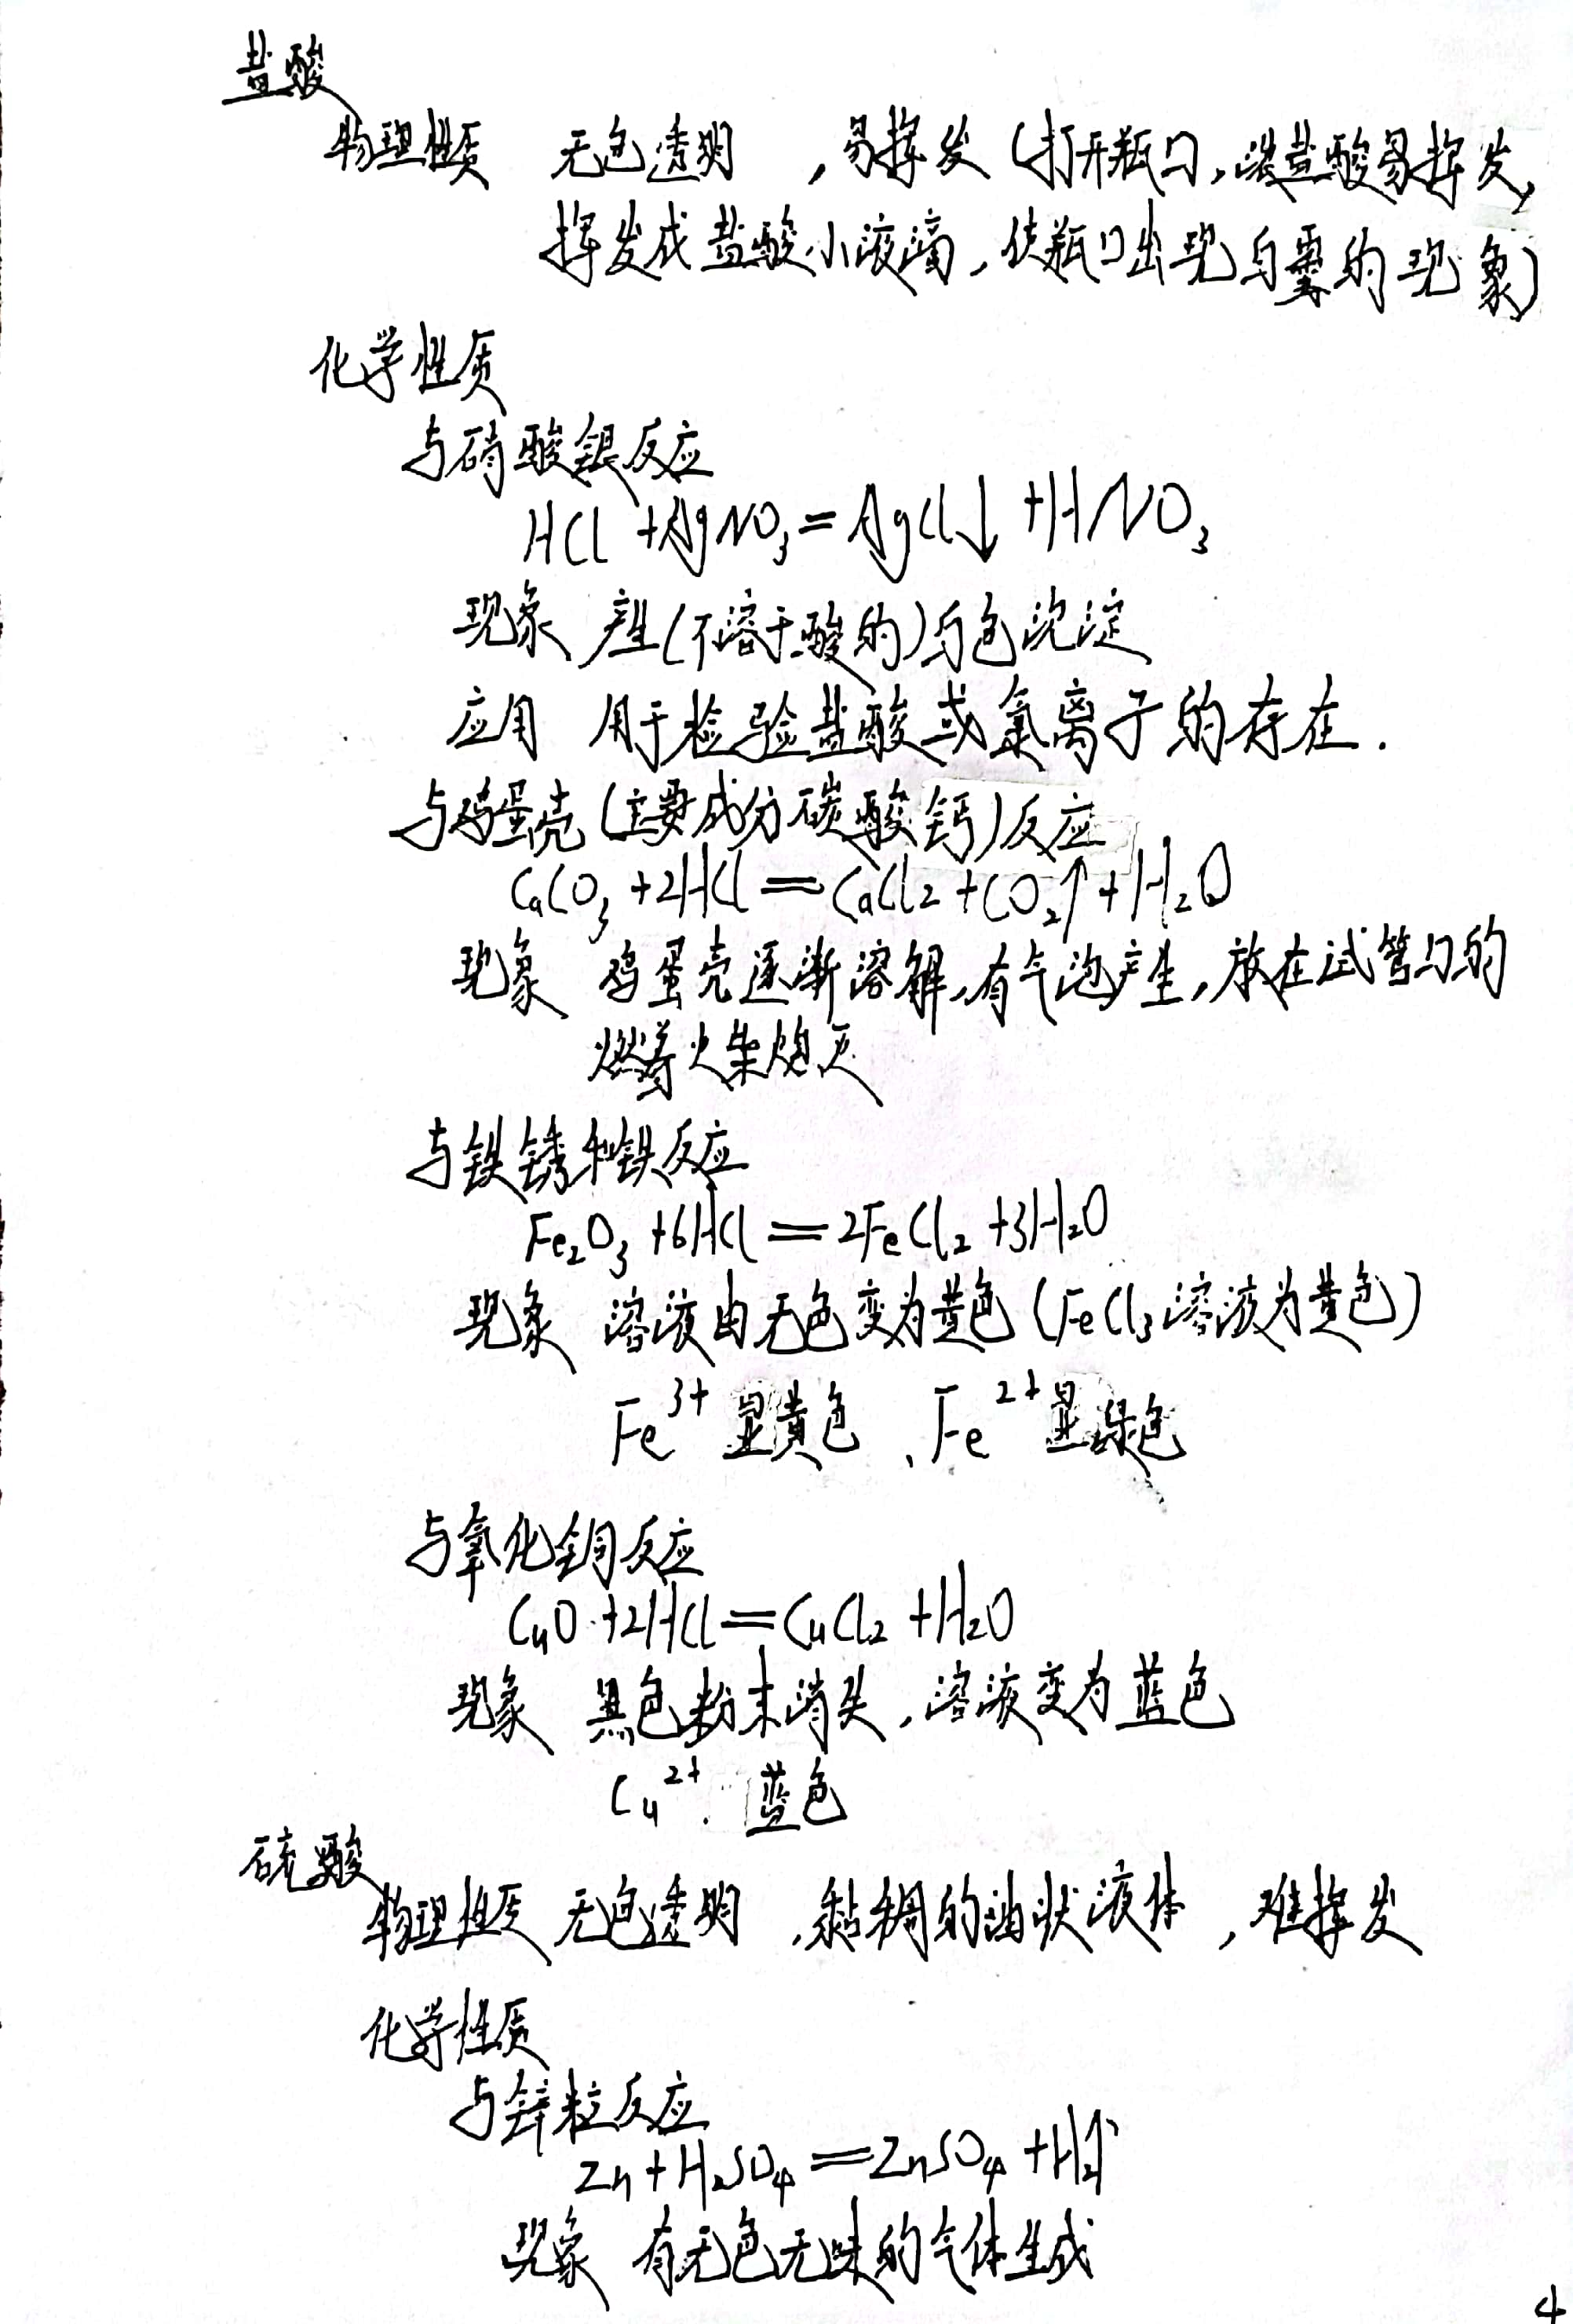 盐酸
物理性质 无色透明 ,易挥发(打开瓶口,浓盐酸易挥发,
挥发成盐酸小液滴,使瓶口出现白雾的现象)
化学性质
与硝酸银反应
HCl+AgNO₃=AgCl↓+HNO₃
现象 产生(不溶于酸的)白色沉淀
应用 用于检验盐酸或氯离子的存在.
与鸡蛋壳(主要成分碳酸钙)反应
CaCO₃+2HCl=CaCl₂+CO₂↑+H₂O
现象 鸡蛋壳逐渐溶解,有气泡产生,放在试管口的
燃着火柴熄灭
与铁锈和铁反应
Fe₂O₃+6HCl=2FeCl₂+3H₂O
现象 溶液由无色变为黄色(FeCl₃溶液为黄色)
Fe³⁺显黄色、Fe²⁺显绿色
与氧化铜反应
CuO+2HCl=CuCl₂+H₂O
现象 黑色粉末消失,溶液变为蓝色
Cu²⁺. 蓝色
硫酸
物理性质 无色透明 ,黏稠的油状液体 ,难挥发
化学性质
与锌粒反应
Zn+H₂SO₄=ZnSO₄+H₂↑
现象 有无色无味的气体生成
4